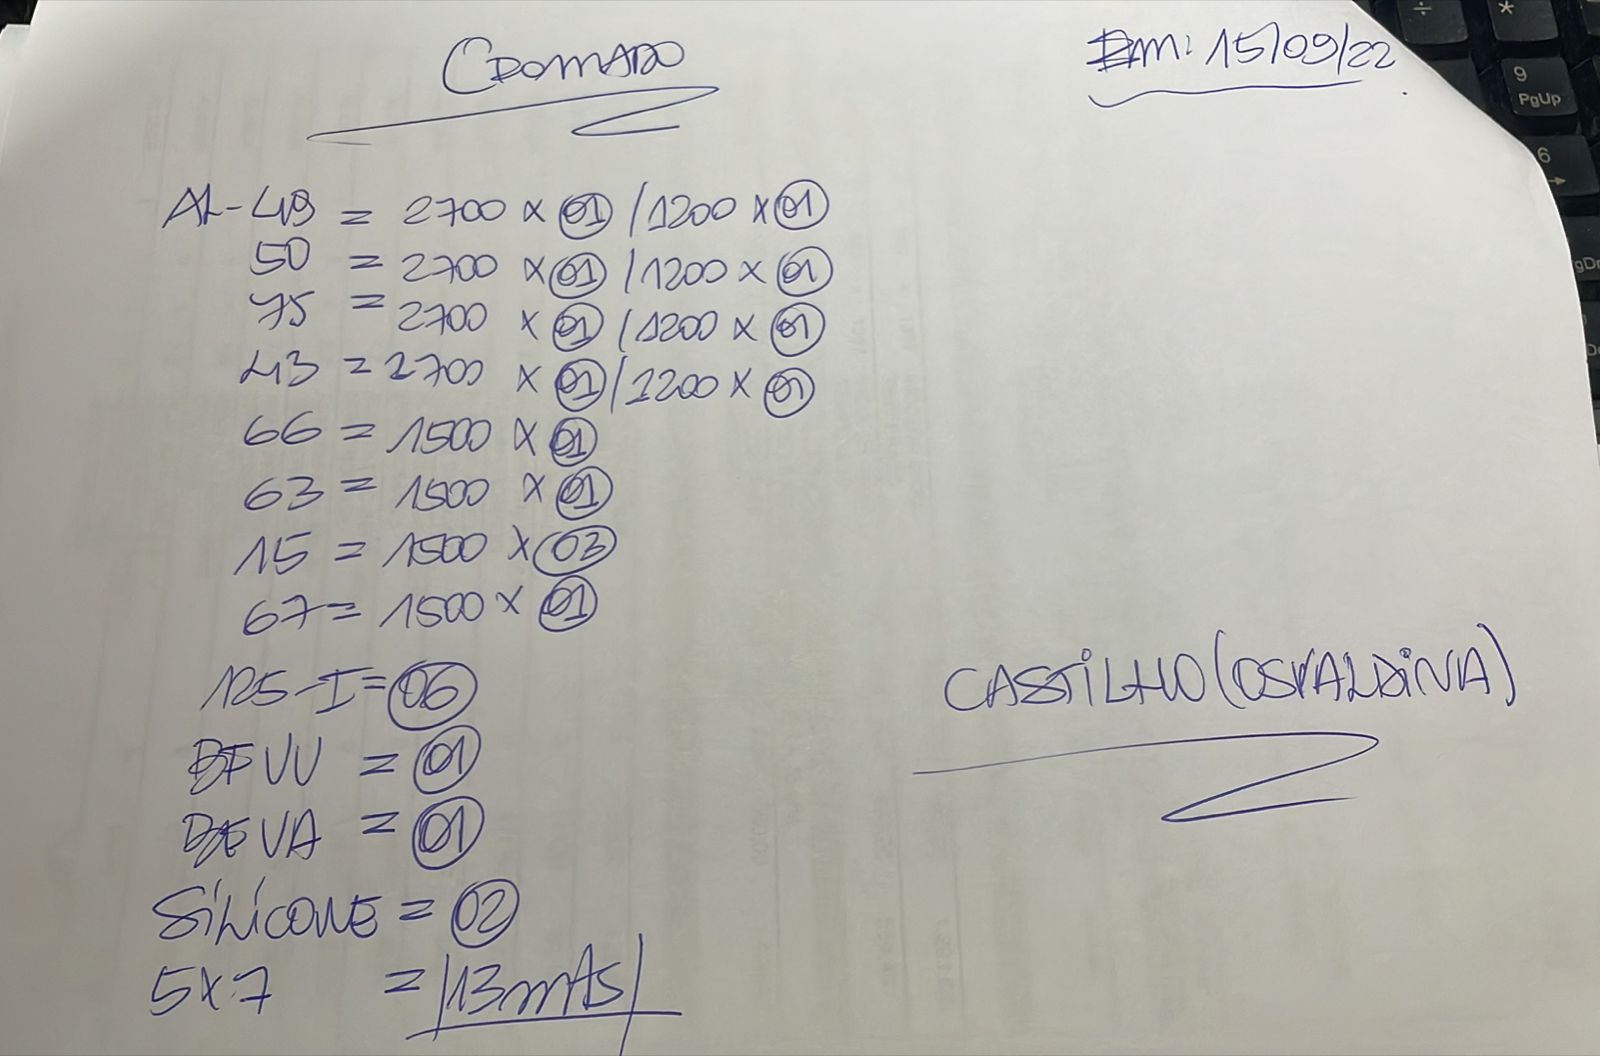 CROMADO
Em: 15/09/22
AL-49 = 2700 x 01 / 1200 x 01
50 = 2700 x 01 / 1200 x 01
75 = 2700 x 01 / 1200 x 01
43 = 2700 x 01 / 1200 x 01
66 = 1500 x 01
63 = 1500 x 01
15 = 1500 x 03
67 = 1500 x 01
125-I = 06
BFVV = 01
BFVA = 01
SiLiCONE = 02
5x7 = 13mts
CASTiLHO (OSVALDiNA)
÷
*
9
PgUp
6
→